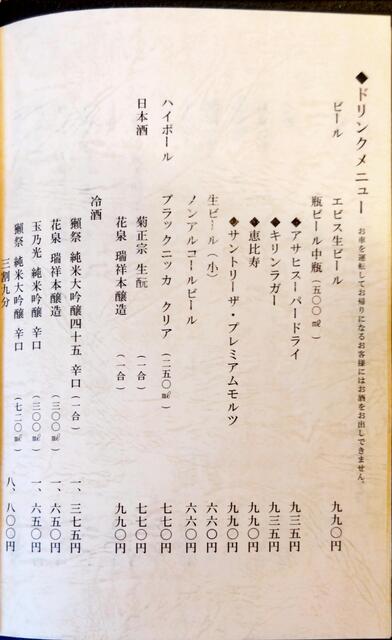 ◆ドリンクメニュー お車を運転してお帰りになるお客様にはお酒をお出しできません。
ビール エビス生ビール 九九〇円
瓶ビール中瓶（五〇〇㎖）
◆アサヒスーパードライ 九三五円
◆キリンラガー 九三五円
◆恵比寿 九九〇円
◆サントリーザ・プレミアムモルツ 九九〇円
生ビール（小） 六六〇円
ノンアルコールビール 六六〇円
ハイボール ブラックニッカ クリア（二五〇㎖） 七七〇円
日本酒 菊正宗 生酛（一合） 七七〇円
花泉 瑞祥本醸造（一合） 九九〇円
冷酒
獺祭 純米大吟醸四十五 辛口（一合） 一、三七五円
花泉 瑞祥本醸造（三〇〇㎖） 一、六五〇円
玉乃光 純米吟醸 辛口（三〇〇㎖） 一、六五〇円
獺祭 純米大吟醸 辛口（七二〇㎖） 八、八〇〇円
三割九分